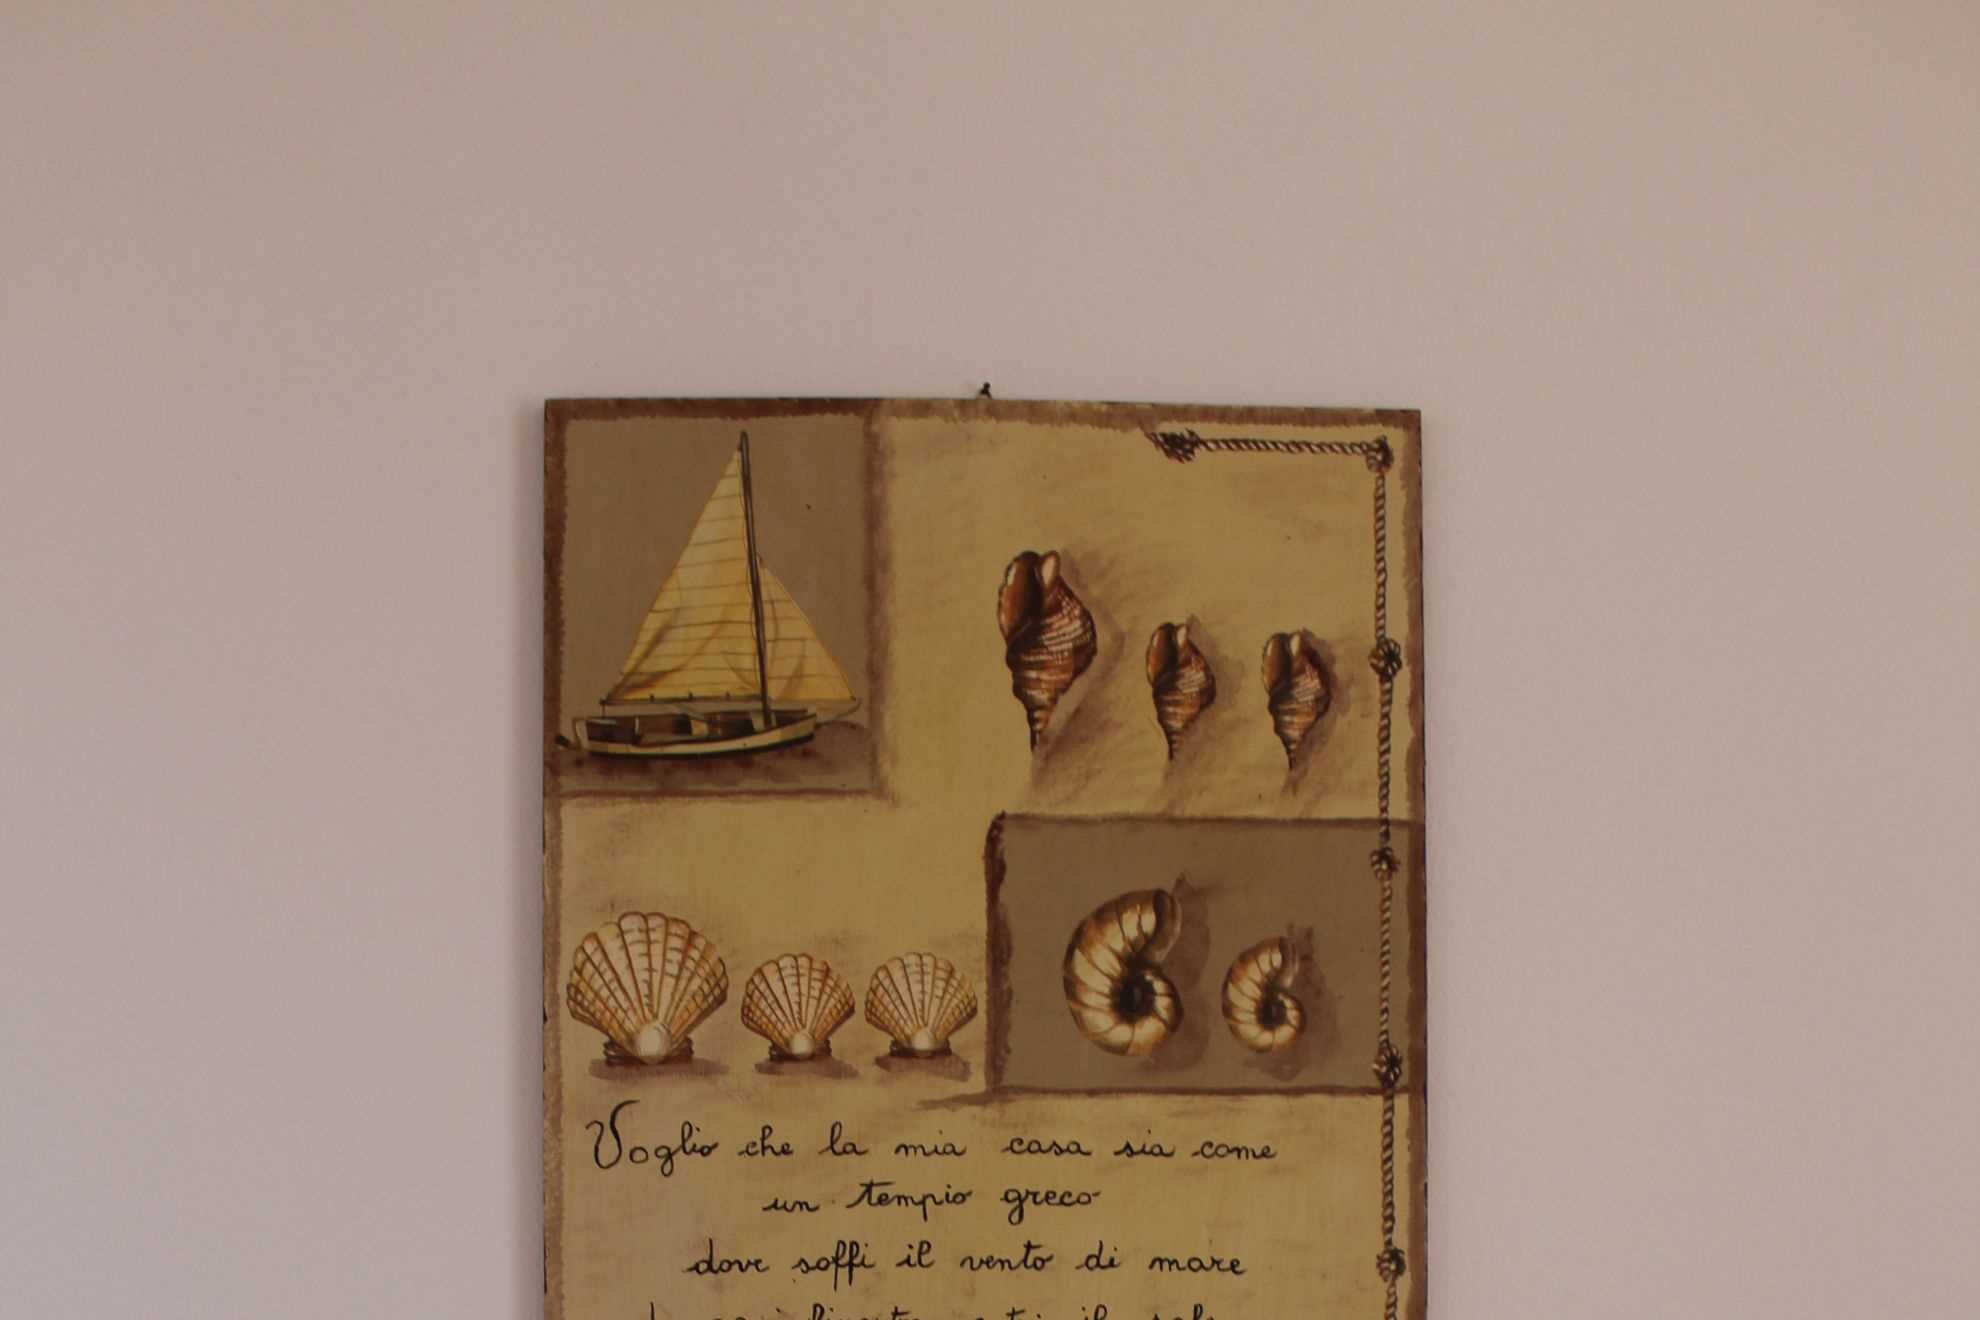 Voglio che la mia casa sia come
un tempio greco
dove soffi il vento di mare
il sole